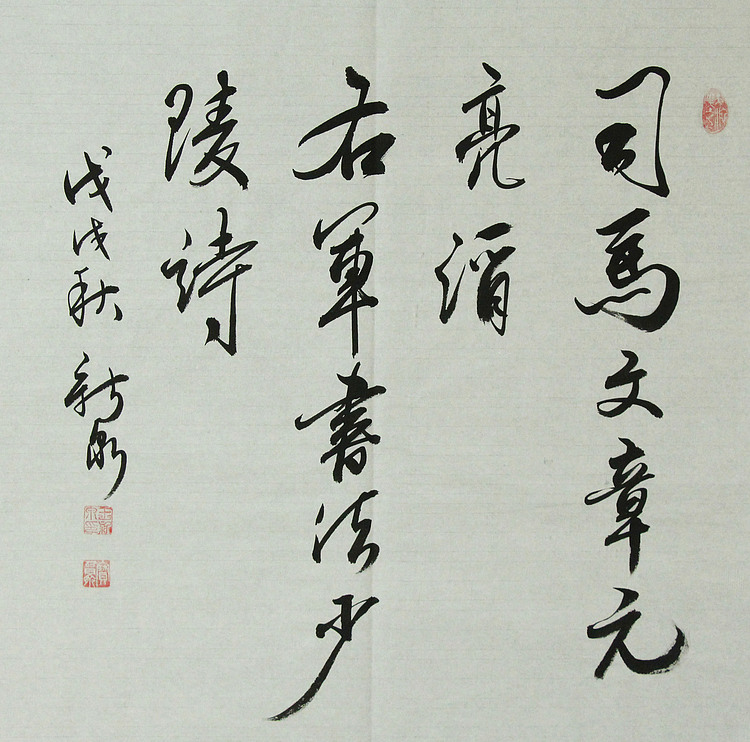 司馬文章元
亮酒
右軍書法少
陵詩
戊戌秋 新泉